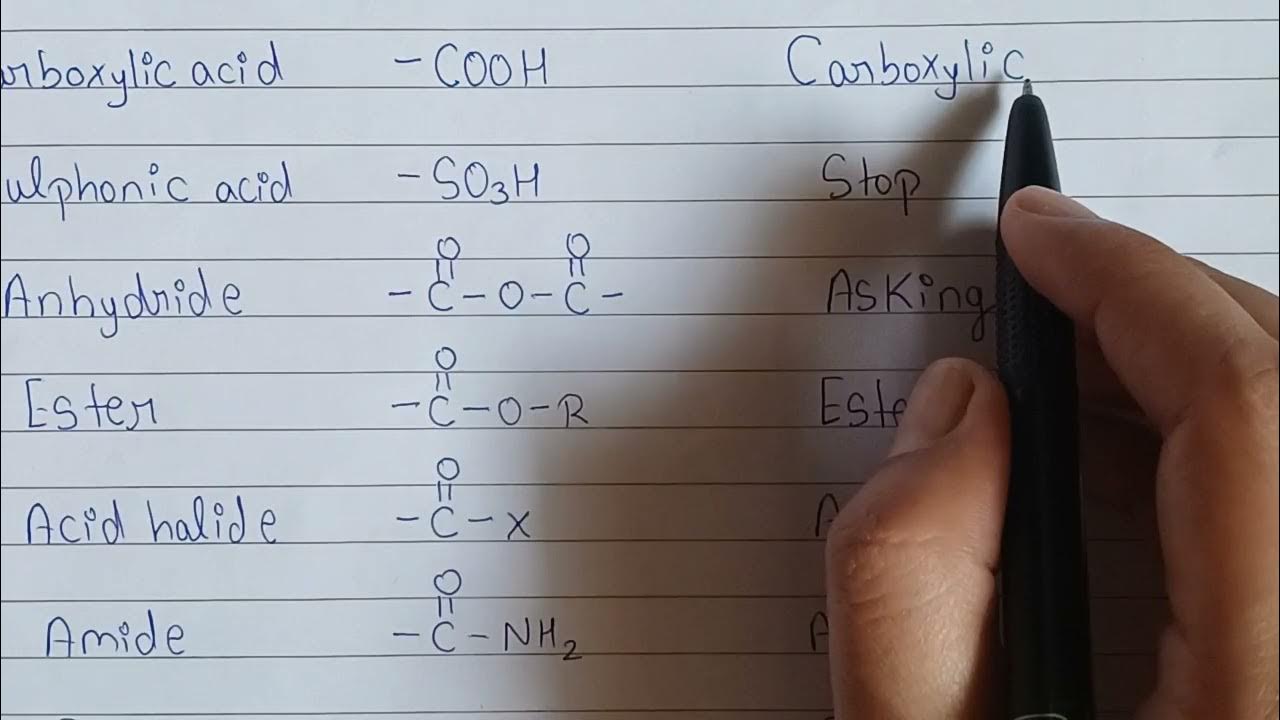 arboxylic acid -COOH Carboxylic
ulphonic acid -SO3H Stop
O O
Anhydride -C-O-C- Asking
O
Ester -C-O-R Este
O
Acid halide -C-X A
O
Amide -C-NH2 A